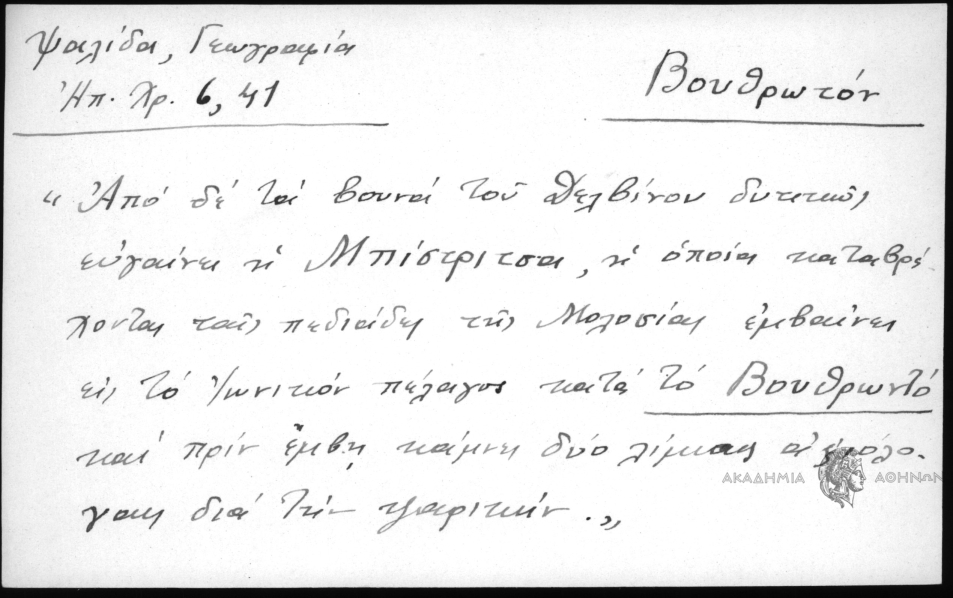 Ψαλίδα, Γεωγραφία
Ἠπ. Χρ. 6, 41
Βουθρωτόν
"Ἀπό δέ τά βουνά τοῦ Δελβίνου δυτικῶς
εὐγαίνει ἡ Μπίστριτσα, ἡ ὁποία καταβρέ
χοντας ταῖς πεδιάδες τῆς Μολοσίας ἐμβαίνει
εἰς τό Ἰωνικόν πέλαγος κατά τό Βουθρωντό
καί πρίν ἔμβῃ κάμνει δύο λίμνας ἀξιολό-
γους διά τήν ψαρικήν."
ΑΚΑΔΗΜΙΑ ΑΘΗΝΩΝ